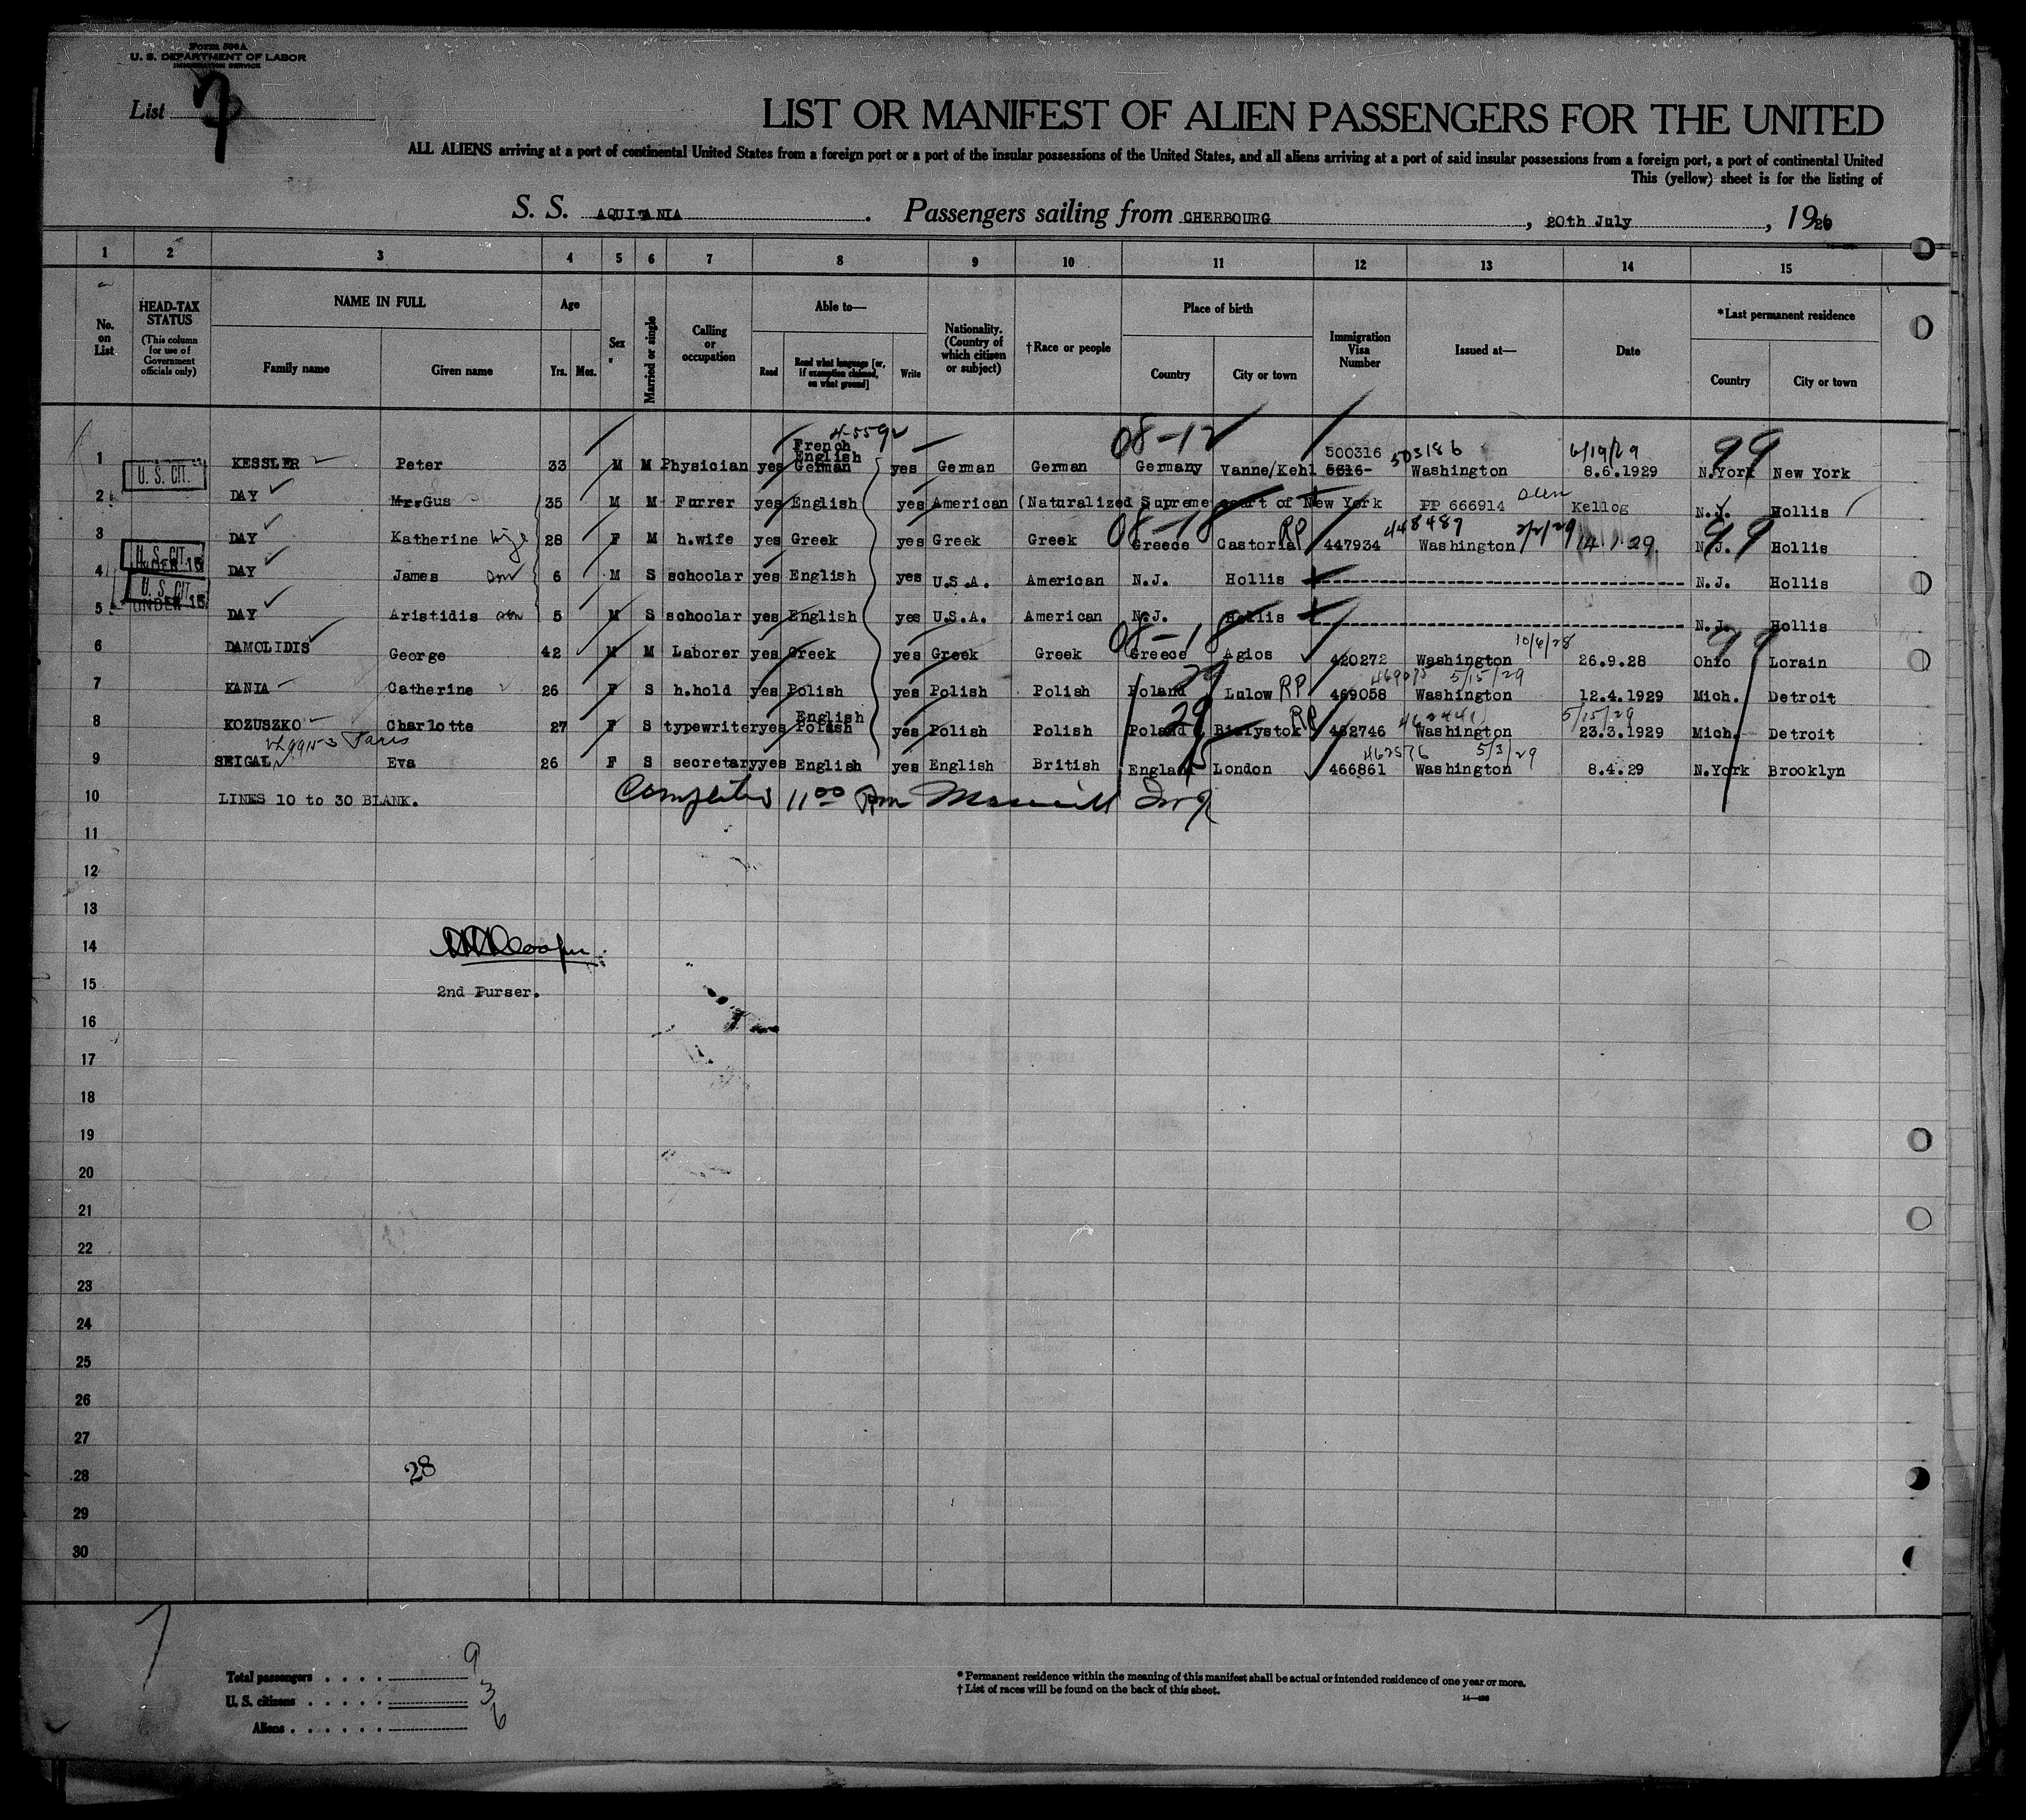 Form 500A
U. S. DEPARTMENT OF LABOR
IMMIGRATION SERVICE
List 7
LIST OR MANIFEST OF ALIEN PASSENGERS FOR THE UNITED
ALL ALIENS arriving at a port of continental United States from a foreign port or a port of the insular possessions of the United States, and all aliens arriving at a port of said insular possessions from a foreign port, a port of continental United
This (yellow) sheet is for the listing of
S. S. AQUITANIA. Passengers sailing from CHERBOURG, 20th July, 19
1 2 3 4 5 6 7 8 9 10 11 12 13 14 15
No. on List
HEAD-TAX STATUS (This column for use of Government officials only)
NAME IN FULL Family name Given name
Age Yrs. Mos.
Sex
Married or single
Calling or occupation
Able to— Read Read what language [or, if exemption claimed, on what ground] Write
Nationality. (Country of which citizen or subject)
†Race or people
Place of birth Country City or town
Immigration Visa Number
Issued at—
Date
*Last permanent residence Country City or town
4-5592 08-12 500316 503186 6/19/29 99
French
English
1 KESSLER Peter 33 M M Physician yes German yes German German Germany Vanne/Kehl 5316- Washington 8.6.1929 N.York New York
U. S. CIT.
2 DAY Mr. Gus 35 M M Furrer yes English yes American (Naturalized Supreme court of New York PP 666914 Kellog N.Y. Hollis
08-18 RP 448487 2/2/29 99
3 DAY Katherine wife 28 F M h.wife yes Greek yes Greek Greek Greece Castoria 447934 Washington 14.1.29. N.J. Hollis
U. S. CIT. UNDER 15
4 DAY James son 6 M S schoolar yes English yes U.S.A. American N.J. Hollis N.J. Hollis
U. S. CIT. UNDER 15
5 DAY Aristidis son 5 M S schoolar yes English yes U.S.A. American N.J. Hollis N.J. Hollis
08-18 10/6/28 99
6 DAMOLIDIS George 42 M M Laborer yes Greek yes Greek Greek Greece Agios 420272 Washington 26.9.28 Ohio Lorain
29 RP 469075 5/15/29
7 KANIA Catherine 26 F S h.hold yes Polish yes Polish Polish Poland Lulow 469058 Washington 12.4.1929 Mich. Detroit
English 29 RP 5/15/29
8 KOZUSZKO Charlotte 27 F S typewriter yes Polish yes Polish Polish Poland Bialystok 462746 Washington 23.3.1929 Mich. Detroit
Paris 467576 5/3/29
9 SEIGAL Eva 26 F S secretary yes English yes English British England London 466861 Washington 8.4.29 N.York Brooklyn
10 LINES 10 to 30 BLANK. Completed 11 00
11
12
13
14
15 2nd Purser.
16
17
18
19
20
21
22
23
24
25
26
27
28 28
29
30
7
Total passengers 9
U. S. citizens 3
Aliens 6
* Permanent residence within the meaning of this manifest shall be actual or intended residence of one year or more.
† List of races will be found on the back of this sheet.